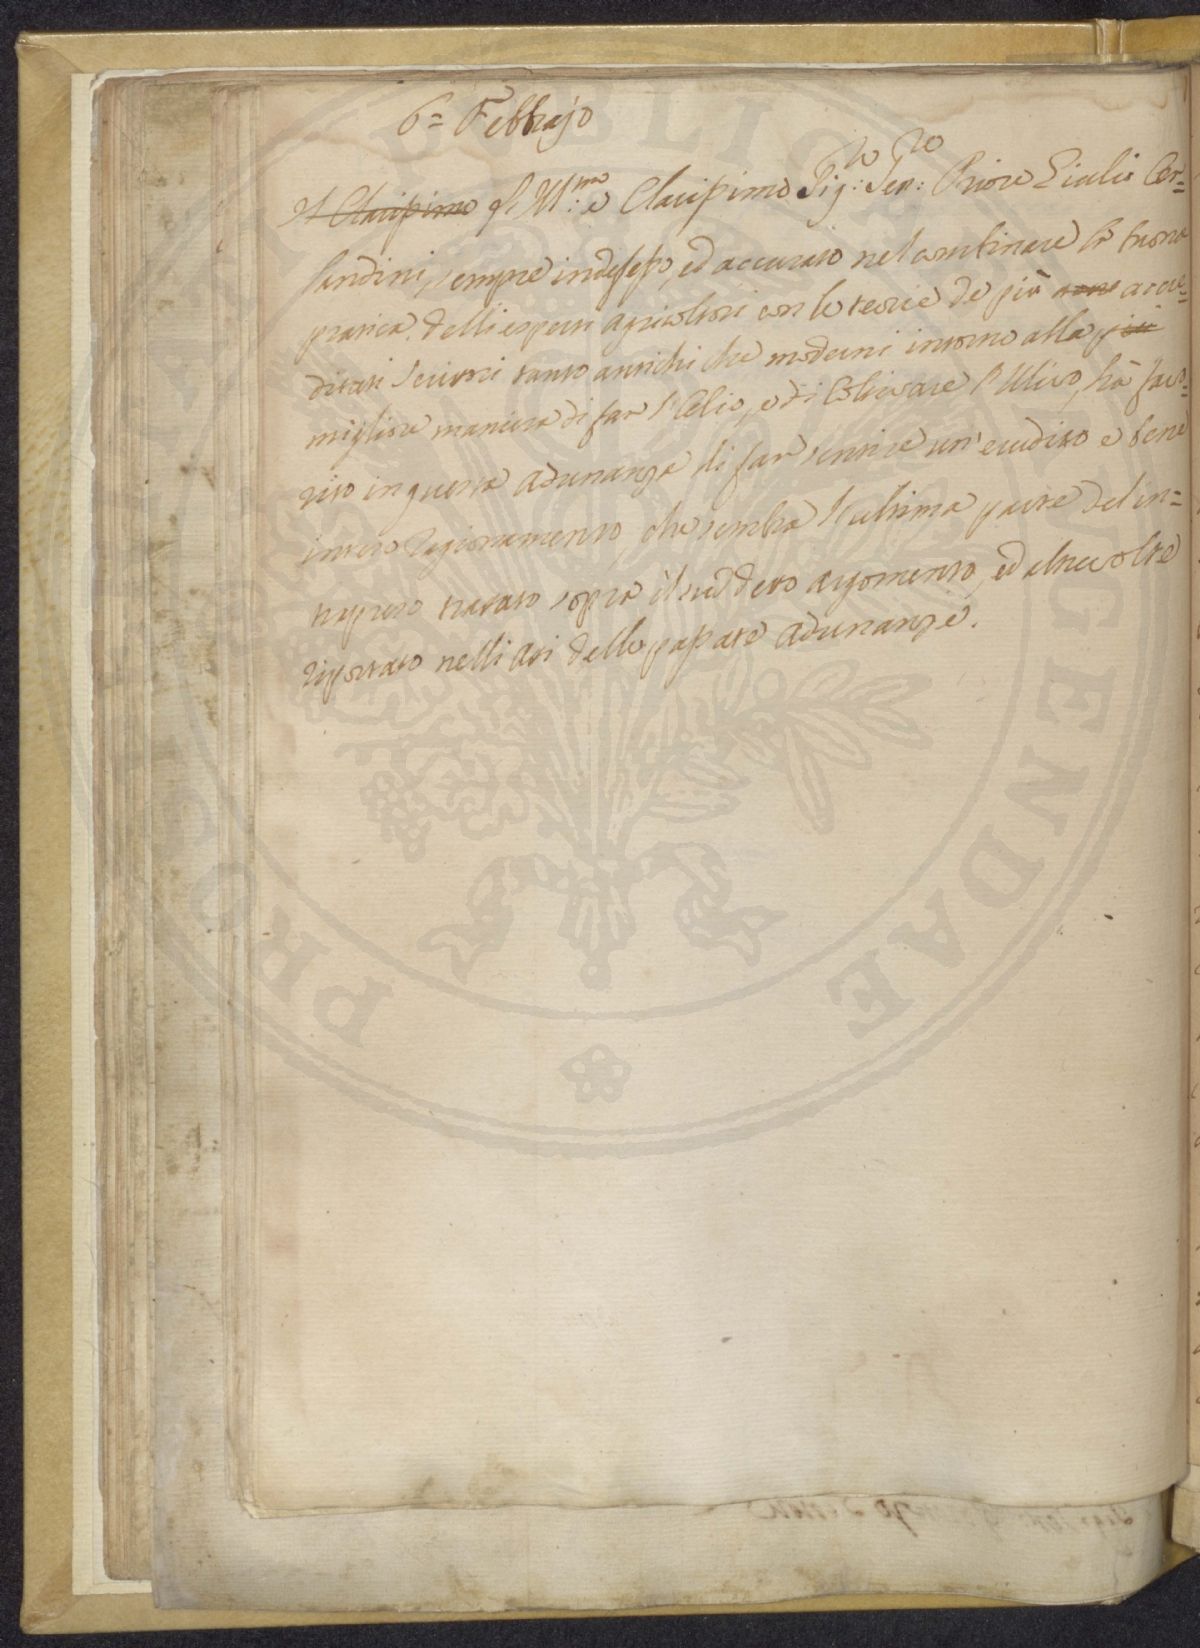 6= Febbrajo
Il Clarissimo Il Ill:mo e Clarissimo Sig:re Sen:re Priore Giulio Or=
landini, sempre indefesso, ed accurato nel combinare la buona
pratica delli esperti agricoltori con le teorie de più accre=
ditati scrittori tanto antichi che moderni intorno alla più
migliore maniera di far l'Olio, e di Coltivare l'Ulivo, hà favo=
rito in questa adunanza di far sentire un'erudito e bene
inteso ragionamento, che sembra l'ultima parte del in=
trapreso trattato sopra il suddetto argomento, ed altre volte
riportato nelli Atti delle passate adunanze.
PRO PUBLICA AUGENDAE